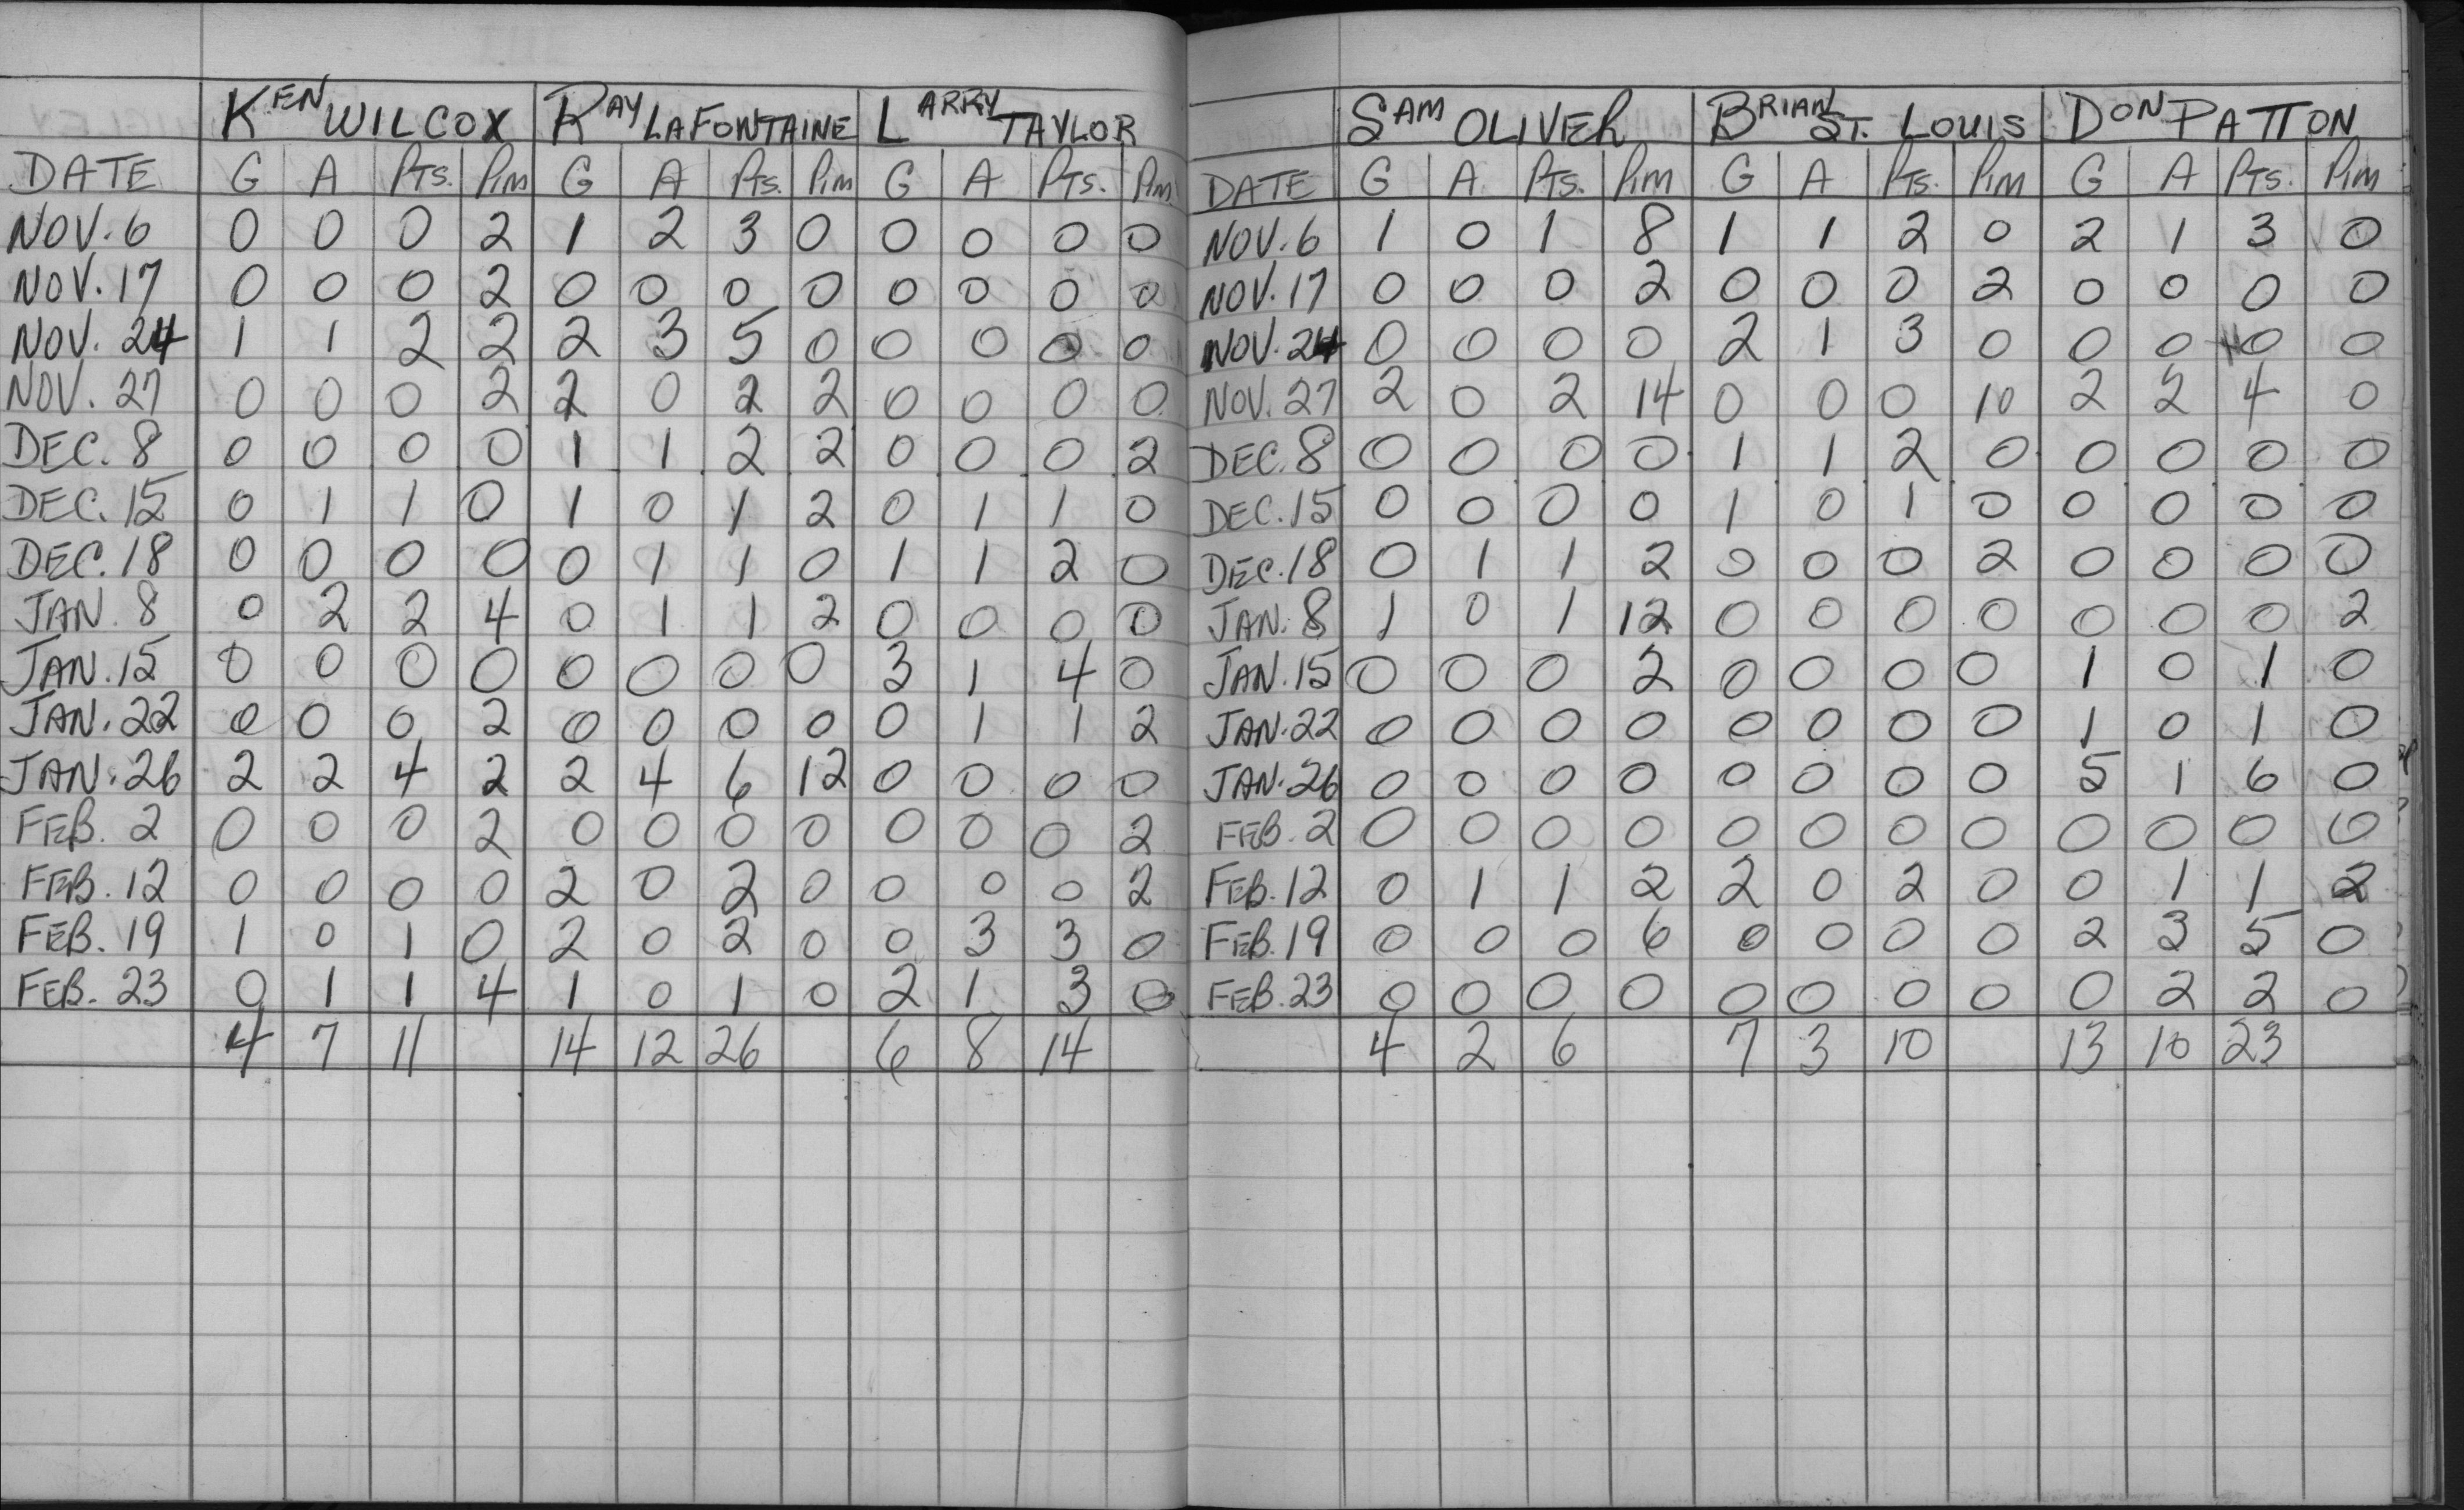 KEN WILCOX RAY LAFONTAINE LARRY TAYLOR
DATE G A PTS. PIM G A PTS. PIM G A PTS. PIM
NOV. 6 0 0 0 2 1 2 3 0 0 0 0 0
NOV. 17 0 0 0 2 0 0 0 0 0 0 0 0
NOV. 24 1 1 2 2 2 3 5 0 0 0 0 0
NOV. 27 0 0 0 2 2 0 2 2 0 0 0 0
DEC. 8 0 0 0 0 1 1 2 2 0 0 0 2
DEC. 15 0 1 1 0 1 0 1 2 0 1 1 0
DEC. 18 0 0 0 0 0 1 1 0 1 1 2 0
JAN. 8 0 2 2 4 0 1 1 2 0 0 0 0
JAN. 15 0 0 0 0 0 0 0 0 3 1 4 0
JAN. 22 0 0 0 2 0 0 0 0 0 1 1 2
JAN. 26 2 2 4 2 2 4 6 12 0 0 0 0
FEB. 2 0 0 0 2 0 0 0 0 0 0 0 2
FEB. 12 0 0 0 0 2 0 2 0 0 0 0 2
FEB. 19 1 0 1 0 2 0 2 0 0 3 3 0
FEB. 23 0 1 1 4 1 0 1 0 2 1 3 0
4 7 11 14 12 26 6 8 14
SAM OLIVER BRIAN ST. LOUIS DON PATTON
DATE G A PTS. PIM G A PTS. PIM G A PTS. PIM
NOV. 6 1 0 1 8 1 1 2 0 2 1 3 0
NOV. 17 0 0 0 2 0 0 0 2 0 0 0 0
NOV. 24 0 0 0 0 2 1 3 0 0 0 0 0
NOV. 27 2 0 2 14 0 0 0 10 2 2 4 0
DEC. 8 0 0 0 0 1 1 2 0 0 0 0 0
DEC. 15 0 0 0 0 1 0 1 0 0 0 0 0
DEC. 18 0 1 1 2 0 0 0 2 0 0 0 0
JAN. 8 1 0 1 12 0 0 0 0 0 0 0 2
JAN. 15 0 0 0 2 0 0 0 0 1 0 1 0
JAN. 22 0 0 0 0 0 0 0 0 1 0 1 0
JAN. 26 0 0 0 0 0 0 0 0 5 1 6 0
FEB. 2 0 0 0 0 0 0 0 0 0 0 0 0
FEB. 12 0 1 1 2 2 0 2 0 0 1 1 2
FEB. 19 0 0 0 6 0 0 0 0 2 3 5 0
FEB. 23 0 0 0 0 0 0 0 0 0 2 2 0
4 2 6 7 3 10 13 10 23